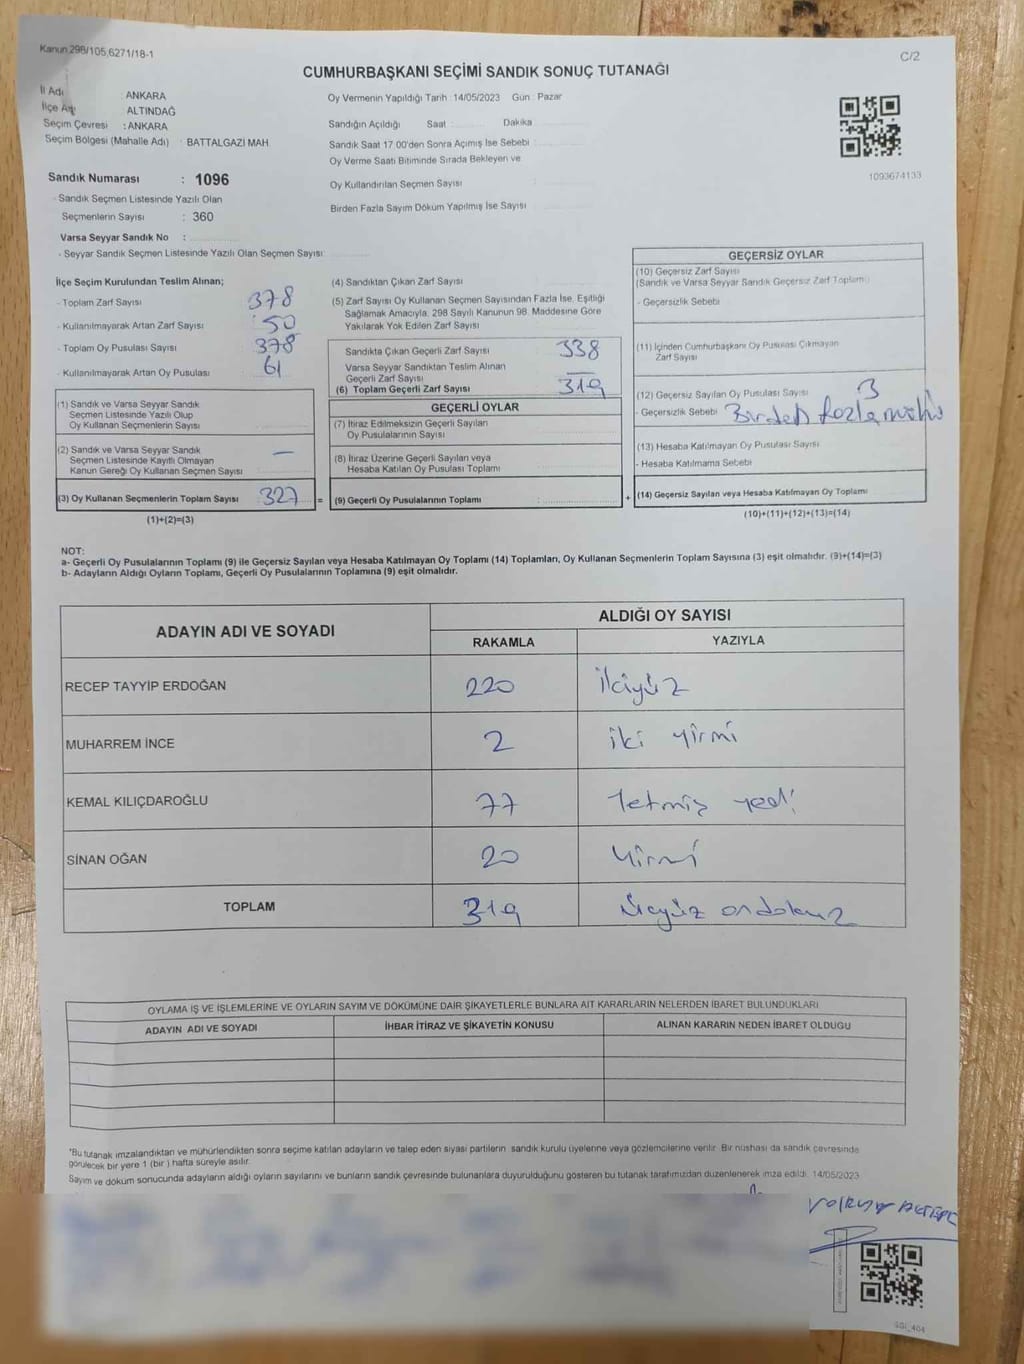 Kanun 298/105,6271/18-1
C/2
CUMHURBAŞKANI SEÇİMİ SANDIK SONUÇ TUTANAĞI
İl Adı : ANKARA
İlçe Adı : ALTINDAĞ
Seçim Çevresi : ANKARA
Seçim Bölgesi (Mahalle Adı) : BATTALGAZİ MAH
Oy Vermenin Yapıldığı Tarih : 14/05/2023 Gün : Pazar
Sandığın Açıldığı Saat : Dakika
Sandık Saat 17 00'den Sonra Açımış İse Sebebi :
Oy Verme Saati Bitiminde Sırada Bekleyen ve
Oy Kullandırılan Seçmen Sayısı :
Birden Fazla Sayım Döküm Yapılmış İse Sayısı :
1093674133
Sandık Numarası : 1096
- Sandık Seçmen Listesinde Yazılı Olan
Seçmenlerin Sayısı : 360
Varsa Seyyar Sandık No :
- Seyyar Sandık Seçmen Listesinde Yazılı Olan Seçmen Sayısı:
İlçe Seçim Kurulundan Teslim Alınan;
- Toplam Zarf Sayısı 378
- Kullanılmayarak Artan Zarf Sayısı 50
- Toplam Oy Pusulası Sayısı 378
- Kullanılmayarak Artan Oy Pusulası 61
(1) Sandık ve Varsa Seyyar Sandık
Seçmen Listesinde Yazılı Olup
Oy Kullanan Seçmenlerin Sayısı
(2) Sandık ve Varsa Seyyar Sandık
Seçmen Listesinde Kayıtlı Olmayan
Kanun Gereği Oy Kullanan Seçmen Sayısı —
(3) Oy Kullanan Seçmenlerin Toplam Sayısı 327 =
(1)+(2)=(3)
(4) Sandıktan Çıkan Zarf Sayısı :
(5) Zarf Sayısı Oy Kullanan Seçmen Sayısından Fazla İse, Eşitliği
Sağlamak Amacıyla, 298 Sayılı Kanunun 98. Maddesine Göre
Yakılarak Yok Edilen Zarf Sayısı
Sandıkta Çıkan Geçerli Zarf Sayısı 338
Varsa Seyyar Sandıktan Teslim Alınan
Geçerli Zarf Sayısı —
(6) Toplam Geçerli Zarf Sayısı 319
GEÇERLİ OYLAR
(7) İtiraz Edilmeksizin Geçerli Sayılan
Oy Pusulalarının Sayısı
(8) İtiraz Üzerine Geçerli Sayılan veya
Hesaba Katılan Oy Pusulası Toplamı
(9) Geçerli Oy Pusulalarının Toplamı : +
GEÇERSİZ OYLAR
(10) Geçersiz Zarf Sayısı
(Sandık ve Varsa Seyyar Sandık Geçersiz Zarf Toplamı)
- Geçersizlik Sebebi
(11) İçinden Cumhurbaşkanı Oy Pusulası Çıkmayan
Zarf Sayısı
(12) Geçersiz Sayılan Oy Pusulası Sayısı 3
- Geçersizlik Sebebi Birden fazla
(13) Hesaba Katılmayan Oy Pusulası Sayısı
- Hesaba Katılmama Sebebi
(14) Geçersiz Sayılan veya Hesaba Katılmayan Oy Toplamı
(10)+(11)+(12)+(13)=(14)
NOT:
a- Geçerli Oy Pusulalarının Toplamı (9) ile Geçersiz Sayılan veya Hesaba Katılmayan Oy Toplamı (14) Toplamları, Oy Kullanan Seçmenlerin Toplam Sayısına (3) eşit olmalıdır. (9)+(14)=(3)
b- Adayların Aldığı Oyların Toplamı, Geçerli Oy Pusulalarının Toplamına (9) eşit olmalıdır.
ADAYIN ADI VE SOYADI
ALDIĞI OY SAYISI
RAKAMLA YAZIYLA
RECEP TAYYİP ERDOĞAN 220 İkiyüz
MUHARREM İNCE 2 iki yirmi
KEMAL KILIÇDAROĞLU 77 Yetmiş yedi
SİNAN OĞAN 20 Yirmi
TOPLAM 319 üçyüz ondokuz
OYLAMA İŞ VE İŞLEMLERİNE VE OYLARIN SAYIM VE DÖKÜMÜNE DAİR ŞİKAYETLERLE BUNLARA AİT KARARLARIN NELERDEN İBARET BULUNDUKLARI
ADAYIN ADI VE SOYADI İHBAR İTİRAZ VE ŞİKAYETİN KONUSU ALINAN KARARIN NEDEN İBARET OLDUĞU
*Bu tutanak imzalandıktan ve mühürlendikten sonra seçime katılan adayların ve talep eden siyasi partilerin sandık kurulu üyelerine veya gözlemcilerine verilir. Bir nüshası da sandık çevresinde
görülecek bir yere 1 (bir ) hafta süreyle asılır.
Sayım ve döküm sonucunda adayların aldığı oyların sayılarını ve bunların sandık çevresinde bulunanlara duyurulduğunu gösteren bu tutanak tarafımızdan düzenlenerek imza edildi. 14/05/2023